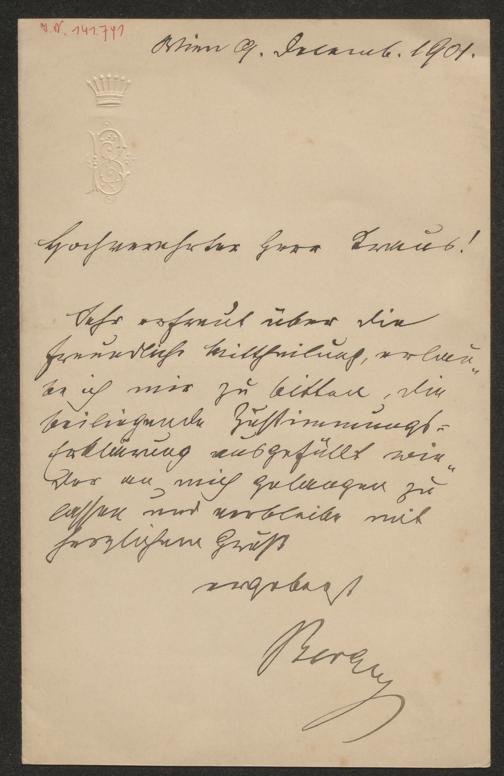 J. N. 141.741
Wien 9. Decemb. 1901.
B
Hochverehrter Herr Traus!
Sehr erfreut über die
freundliche Mittheilung, erlau„
be ich mir zu bitten, die
beiliegende Zustimmungs=
Erklärung ausgefüllt wie„
der an mich gelangen zu
lassen und verbleibe mit
herzlichem Gruß
ergebenst